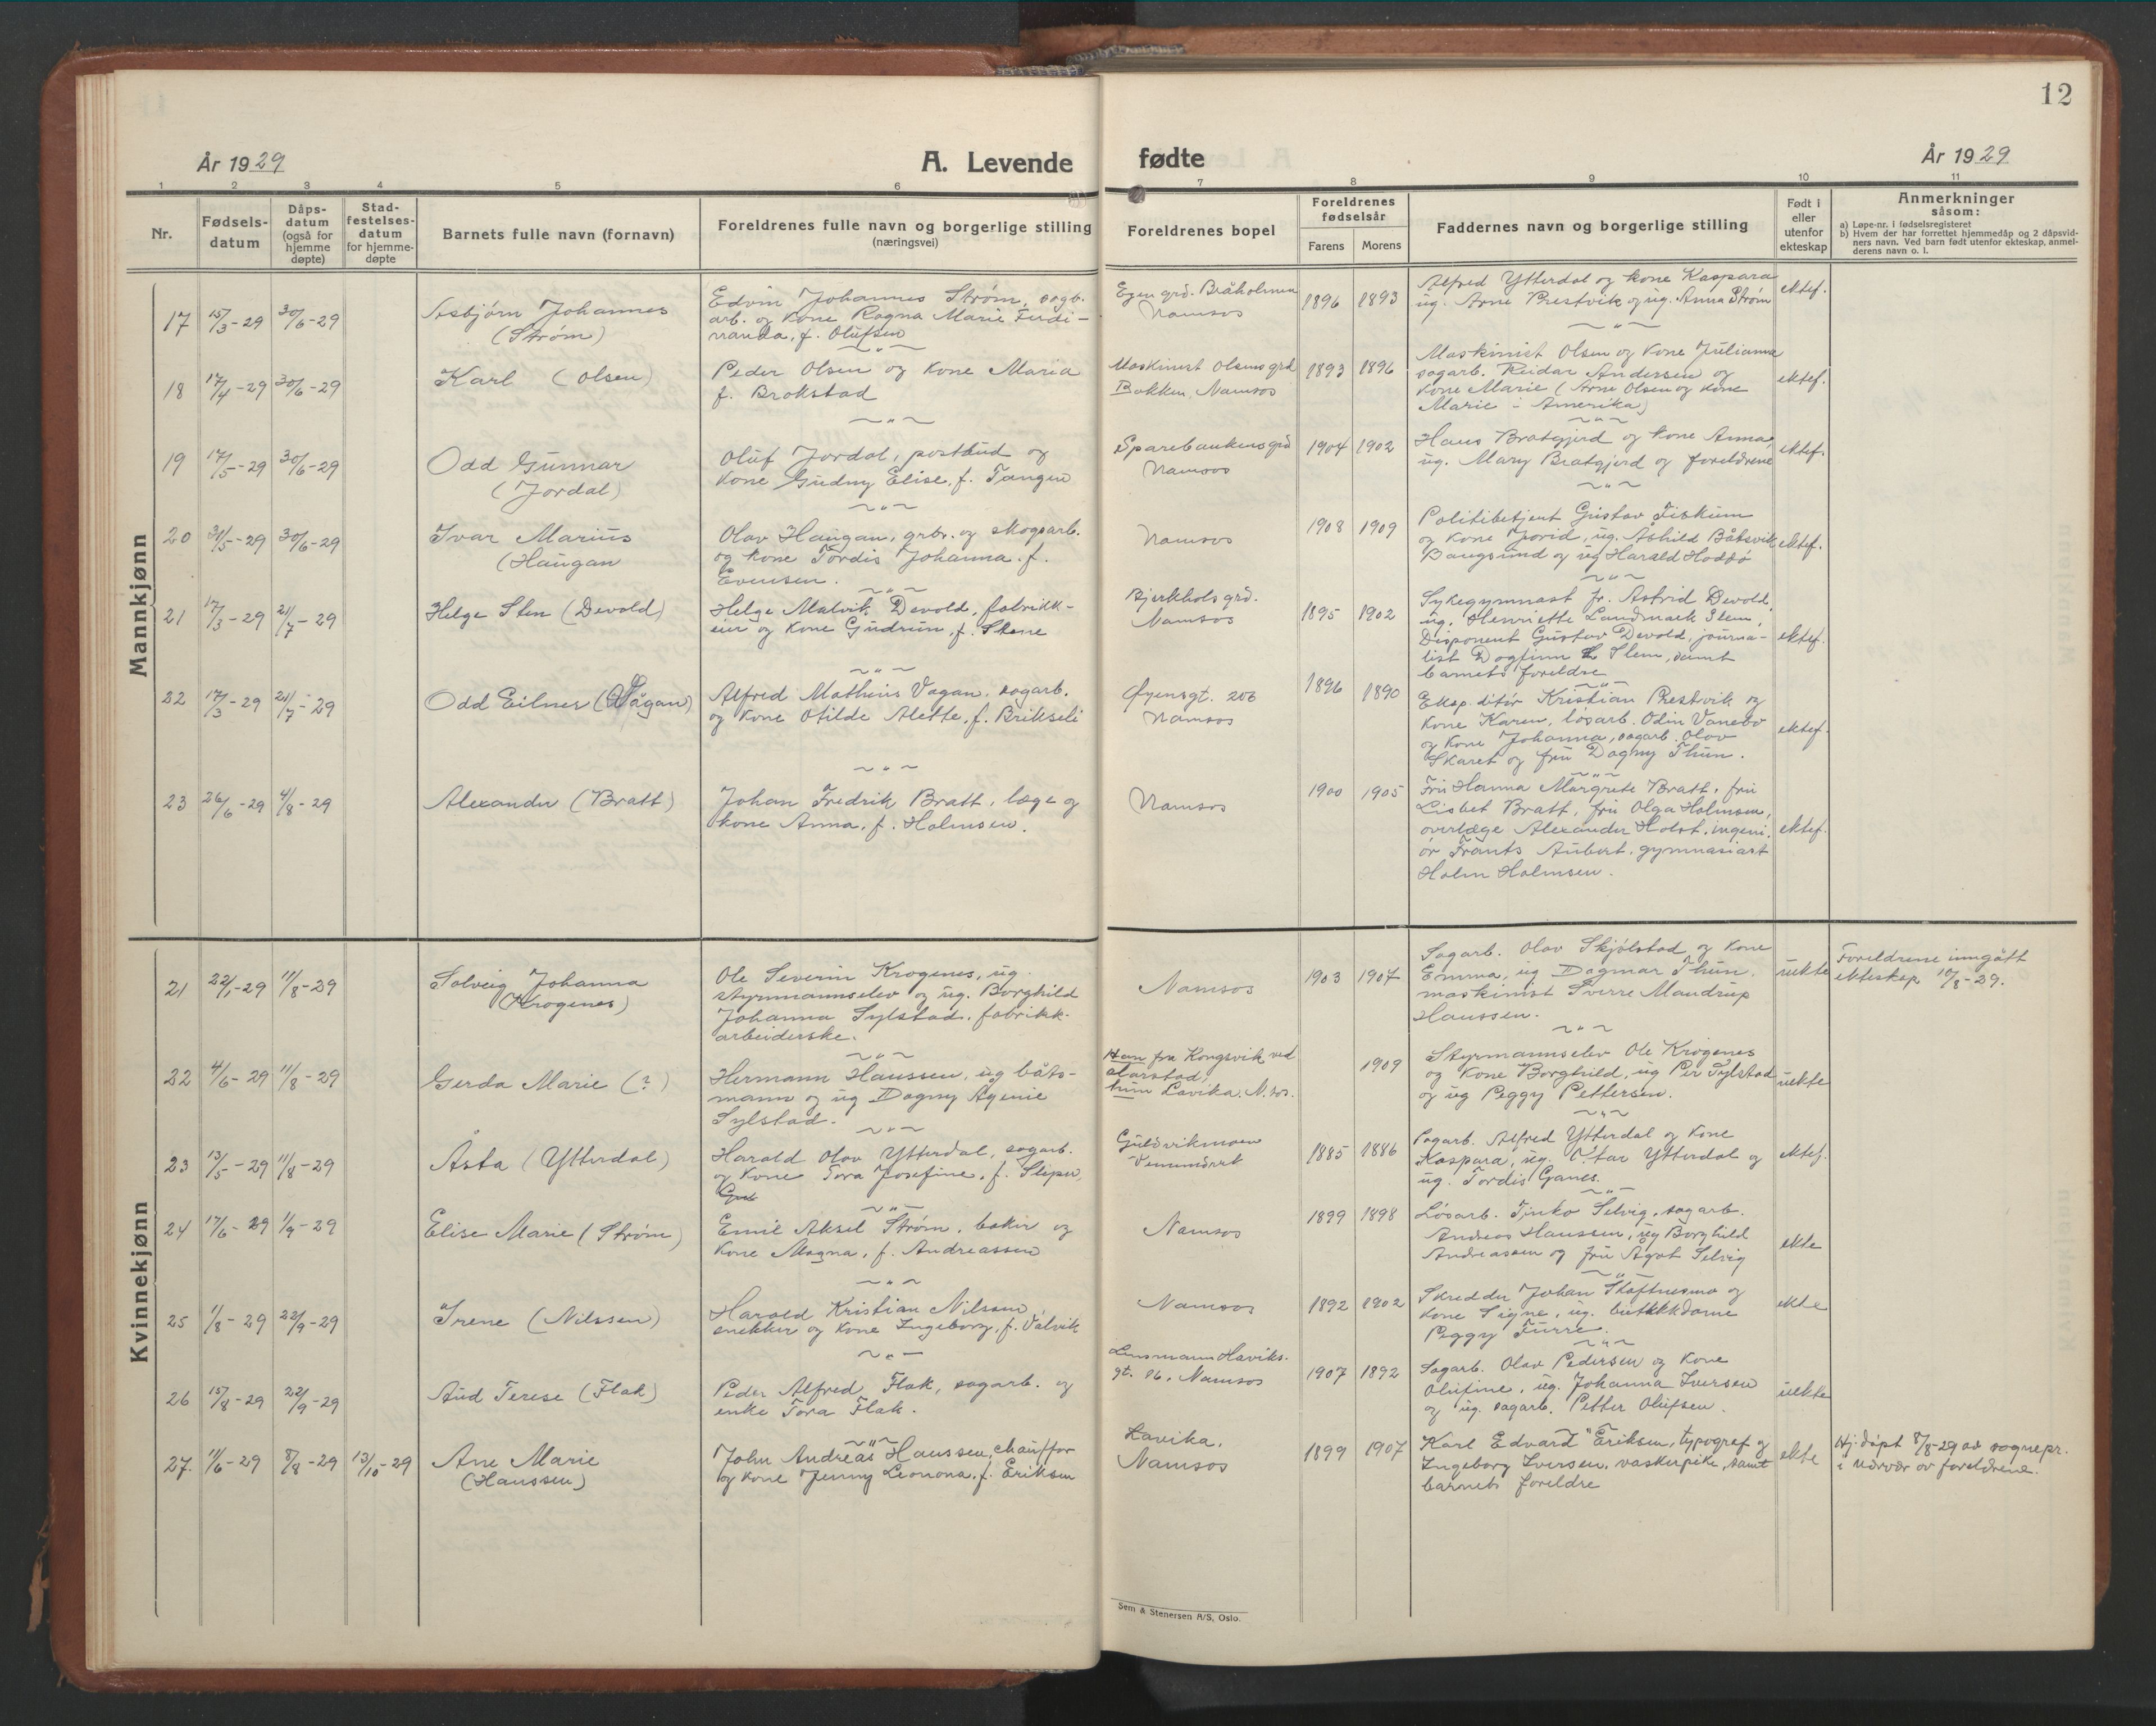 12
År 1929
A. Levende
fødte
År 1929
1 2 3 4 5 6 7 8 9 10 11
Nr.
Fødsels-
datum
Dåps-
datum
(også for
hjemme
døpte)
Stad-
festelses-
datum
for hjemme-
døpte
Barnets fulle navn (fornavn)
Foreldrenes fulle navn og borgerlige stilling
(næringsvei)
Foreldrenes bopel
Foreldrenes
fødselsår
Farens
Morens
Faddernes navn og borgerlige stilling
Født i
eller
utenfor
ekteskap
Anmerkninger
såsom:
a) Løpe-nr. i fødselsregisteret
b) Hvem der har forrettet hjemmedåp og 2 dåpsvid-
ners navn. Ved barn født utenfor ekteskap, anmel-
derens navn o. l.
Mannkjønn
17 15/3-29 30/6-29
Asbjørn Johannes
(Strøm)
Edvin Johannes Strøm, sagb.
arb. og kone Ragna Marie Ferdi-
nanda, f. Olufsen
Egen grd. Bråholmen
Namsos
1896 1893
Alfred Ytterdal og kone Kaspara
ug. Arne Prestvik og ug. Anna Strøm
ektef.
18 17/4-29 30/6-29
Karl (Olsen)
Peder Olsen og kone Maria
f. Brokstad
Maskinist Olsens grd
Bakken, Namsos
1893 1896
Maskinist Olsen og kone Julianne
sagarb. Reidar Andersen og
kone Marie (Arne Olsen og kone
Marie i Amerika)
ektef.
19 17/5-29 30/6-29
Odd Gunnar
(Jordal)
Oluf Jordal, postbud og
kone Gudny Elise, f. Tangen
Sparebankens grd
Namsos
1904 1902
Hans Bratgjerd og kone Anna,
ug. Mary Bratgjerd og foreldrene
ektef.
20 31/5-29 30/6-29
Ivar Marius
(Haugan
Olav Haugan, grbr. og skogsarb.
og kone Tordis Johanna. f.
Evensen.
Namsos
1908 1909
Politibetjent Gustav Fiskum
og kone Jorid, ug. Åshild Båtsvik
Bangsund og ug Harald Hoddø
ektef.
21 17/3-29 21/7-29
Helge Sten (Devold)
Helge Malvik Devold, fabrikk-
eier og kone Gudrun, f. Stene
Bjerkhols grd.
Namsos
1895 1902
Sykegymnast fr. Astrid Devold,
ug. Henriette Landmark Slem,
Disponent Gustav Devold, journa-
list Dagfinn L Slem, samt
barnets foreldre
ektef.
22 17/3-29 21/7-29
Odd Eilner (Vågan)
Alfred Mathius Vagan, sagarb.
og kone Otilde Alette, f. Brikseli
Øyensgt. 206
Namsos
1896 1890
Eksp.ditør Kristian Prestvik og
kone Karen, løsarb. Odin Vanebo
og kone Johanna, sagarb. Olav
Skaret og fru Dagny Thun.
ektef.
23 26/6-29 4/8-29
Alexander (Bratt)
Johan Fredrik Bratt, læge og
kone Anna, f. Holmsen.
Namsos
1900 1905
Fru Hanna Margrete Bratt, fru
Lisbet Bratt, fru Olga Holmsen,
overlæge Alexander Holst, ingeni-
ør Frants Aubert, gymnasiast
Holm Holmsen.
ektef.
Kvinnekjønn
21 22/1-29 11/8-29
Solveig Johanna
(Krogenes)
Ole Severin Krogenes, ug.
styrmannselev og ug. Borghild
Johanna Sylstad, fabrikk-
arbeiderske.
Namsos
1903 1907
Sagarb. Olav Skjølstad og kone
Emma, ug Dagmar Thun,
maskinist Sverre Mandrup
Hanssen.
uekte
Foreldrene inngått
ekteskap 10/8-29.
22 4/6-29 11/8-29
Gerda Marie (?)
Hermann Hanssen, ug båts-
mann og ug Dagny Agenie
Sylstad.
Han fra Kongsvik ved
Harstad,
hun Lavika, N.sos.
1909
Styrmannselev Ole Krogenes
og kone Borghild, ug Per Sylstad
og ug Peggy Pettersen.
uekte
23 13/5-29 11/8-29
Åsta (Ytterdal)
Harald Olav Ytterdal, sagarb.
og kone Tora Josefine, f. Slipen,
Guldvikmoen
Vemundvik
1885 1886
Sagarb. Alfred Ytterdal og kone
Kaspara, ug. Ottar Ytterdal og
ug. Tordis Ganes.
ektef.
24 17/6-29 1/9-29
Elise Marie (Strøm)
Emil Aksel Strøm, baker og
kone Magna, f. Andreassen
Namsos
1899 1898
Løsarb. Tinko Selvig, sagarb.
Andreas Hanssen, ug Borghild
Andreassen og fru Ågot Selvig
ekte
25 1/8-29 22/9-29
Irene (Nilssen)
Harald Kristian Nilssen,
snekker og kone Ingeborg, f. Valvik
Namsos
1892 1902
Skredder Johan Skaftnesmo og
kone Signe, ug. butikkdame
Peggy Furre.
ekte
26 15/8-29 22/9-29
Aud Terese (Flak)
Peder Alfred Flak, sagarb. og
enke Tora Flak.
Lensmann Haviks-
gt. 86, Namsos
1907 1892
Sagarb. Olav Pedersen og kone
Olufine, ug. Johanna Iversen
og ug. sagarb. Petter Olufsen.
uekte
27. 11/6-29 8/8-29 13/10-29
Ane Marie
(Hanssen)
John Andreas Hanssen, chauffør
og kone Jenny Leonona, f. Eriksen
Lavika,
Namsos
1899 1907
Karl Edvard Eriksen, typograf og
Ingeborg Iversen, vaskepike, samt
barnets foreldre
ekte
Hj.døpt 8/8-29 av sognepr.
i nærvær av foreldrene.
Sem & Stenersen A/S, Oslo.